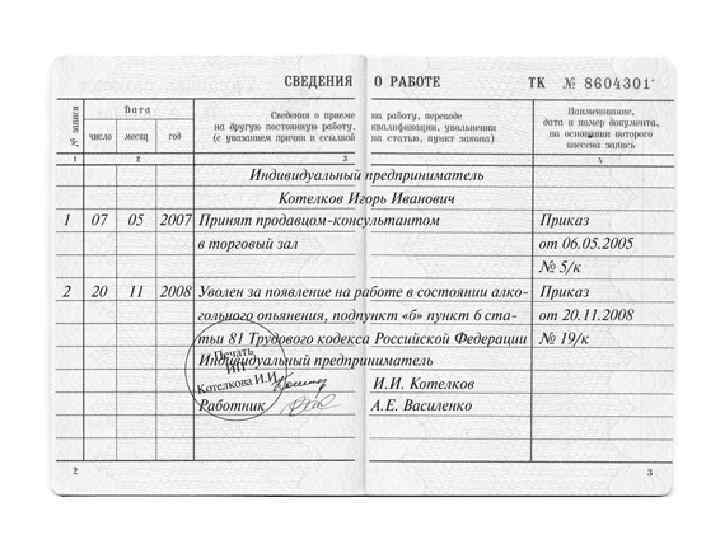 СВЕДЕНИЯ О РАБОТЕ ТК № 8604301
№ записи Дата Сведения о приеме на работу, переводе Наименование,
на другую постоянную работу, квалификации, увольнении дата и номер документа,
число месяц год (с указанием причин и ссылкой на статью, пункт закона) на основании которого
внесена запись
1 2 3 4
Индивидуальный предприниматель
Котелков Игорь Иванович
1 07 05 2007 Принят продавцом-консультантом Приказ
в торговый зал от 06.05.2005
№ 5/к
2 20 11 2008 Уволен за появление на работе в состоянии алко- Приказ
гольного опьянения, подпункт «б» пункт 6 ста- от 20.11.2008
тьи 81 Трудового кодекса Российской Федерации № 19/к
Индивидуальный предприниматель
Печать
ИП
Котелкова И.И.
И.И. Котелков
Работник А.Е. Василенко
2 3